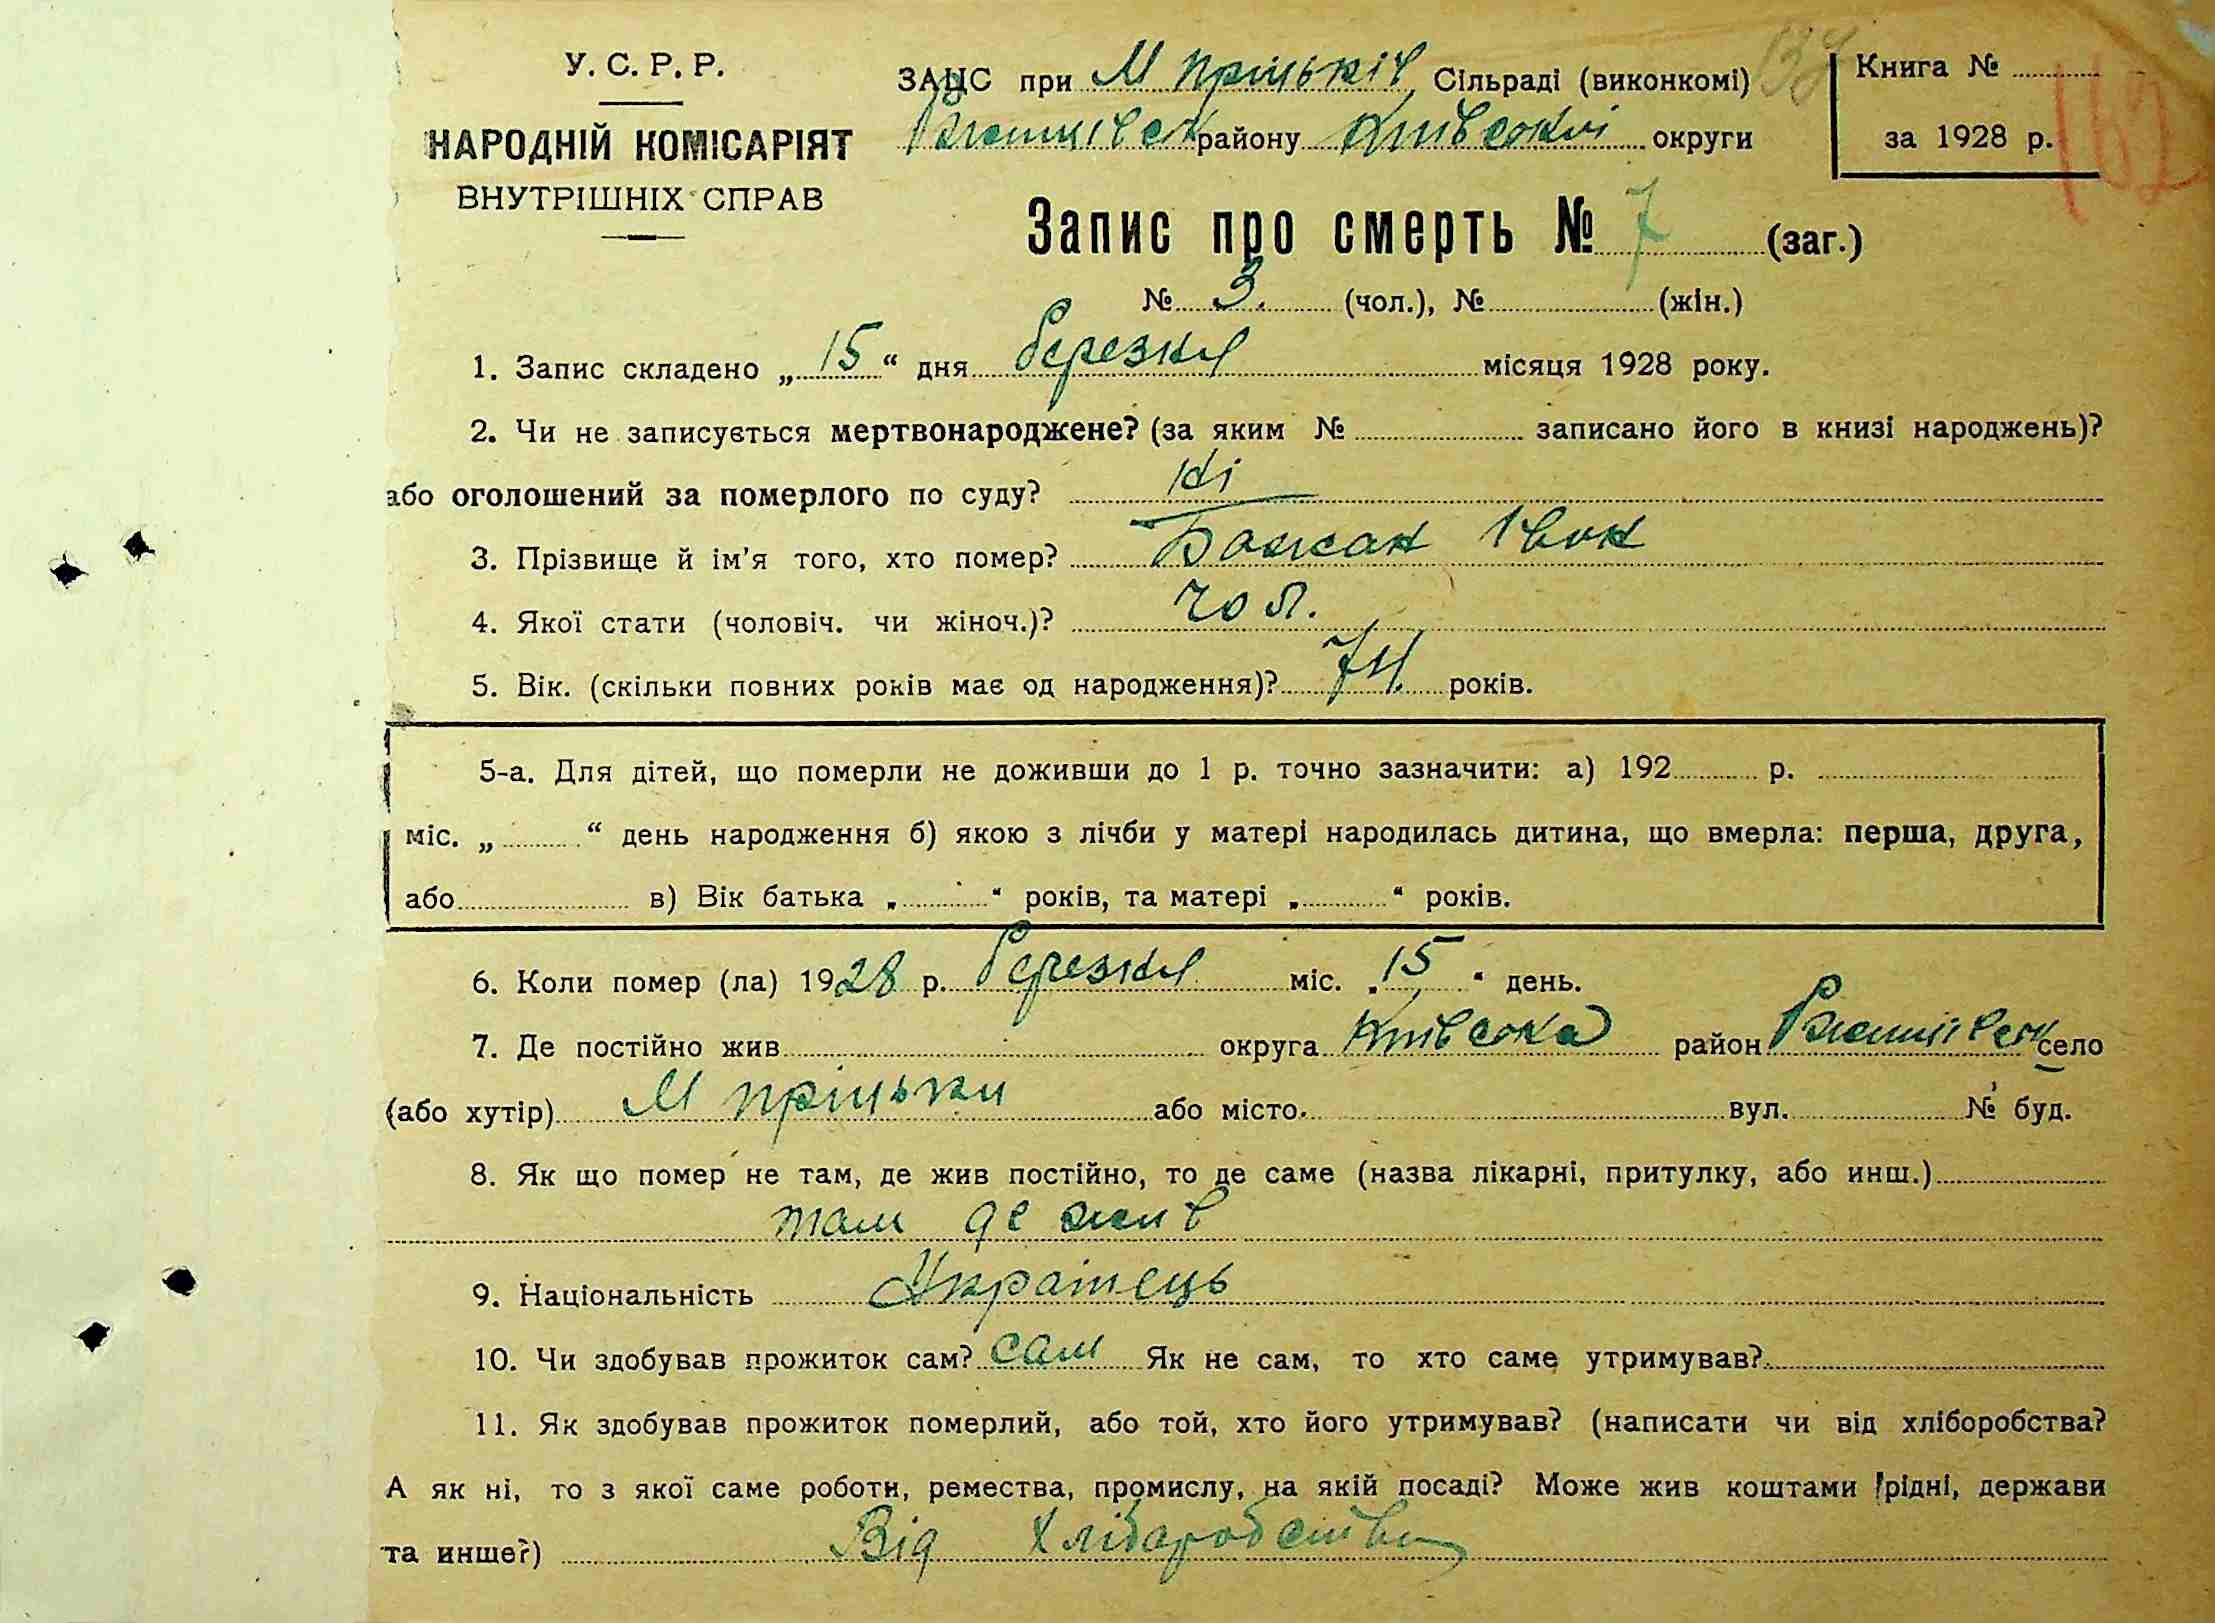 У. С. Р. Р.
НАРОДНІЙ КОМІСАРІЯТ
ВНУТРІШНІХ СПРАВ
ЗАЦС при М пріцьків Сільраді (виконкомі)
Ржищівськ району Київської округи
138
Книга №
за 1928 р.
162
Запис про смерть № 7 (заг.)
№ 3. (чол.), № (жін.)
1. Запис складено „ 15 “ дня березня місяця 1928 року.
2. Чи не записується мертвонароджене? (за яким № записано його в книзі народжень)?
або оголошений за померлого по суду? Ні
3. Прізвище й ім’я того, хто помер? Бажан Іван
4. Якої стати (чоловіч. чи жіноч.)? чол.
5. Вік. (скільки повних років має од народження)? 74. років.
5-а. Для дітей, що померли не доживши до 1 р. точно зазначити: а) 192 р.
міс. „ “ день народження б) якою з лічби у матері народилась дитина, що вмерла: перша, друга,
або в) Вік батька „ “ років, та матері „ “ років.
6. Коли помер (ла) 1928 р. березня міс. „ 15 “ день.
7. Де постійно жив округа Київська район Ржищівськ село
(або хутір) М пріцьки або місто вул. № буд.
8. Як що помер не там, де жив постійно, то де саме (назва лікарні, притулку, або инш.)
там де жив
9. Національність Українець
10. Чи здобував прожиток сам? сам Як не сам, то хто саме утримував?
11. Як здобував прожиток померлий, або той, хто його утримував? (написати чи від хліборобства?
А як ні, то з якої саме роботи, ремества, промислу, на якій посаді? Може жив коштами рідні, держави
та инше?) Від Хліборобства